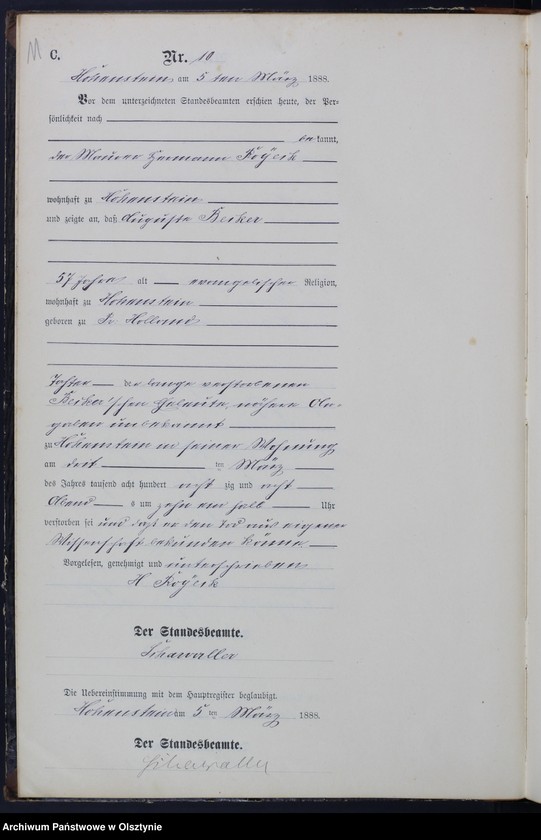 C. Nr. 10
Hohenstein am 5 ten März 1888.
Vor dem unterzeichneten Standesbeamten erschien heute, der Per-
sönlichkeit nach
be kannt,
der Maurer Hermann
wohnhaft zu Hohenstein
und zeigte an, daß Auguste Becker
57 Jahre alt evangelischer Religion,
wohnhaft zu Hohenstein
geboren zu Pr. Holland
Tochter der lange verstorbenen
Becker'schen Eheleute, nähere An-
gaben unbekannt
zu Hohenstein in seiner Wohnung
am ten März
des Jahres tausend acht hundert acht zig und acht
Abend s um zehn ein halb Uhr
verstorben sei und daß er den Tod aus eigener
Wissenschaft bekunden könne.
Vorgelesen, genehmigt und unterschrieben
H
Der Standesbeamte.
Die Uebereinstimmung mit dem Hauptregister beglaubigt.
Hohenstein am 5 ten März 1888.
Der Standesbeamte.
Archiwum Państwowe w Olsztynie